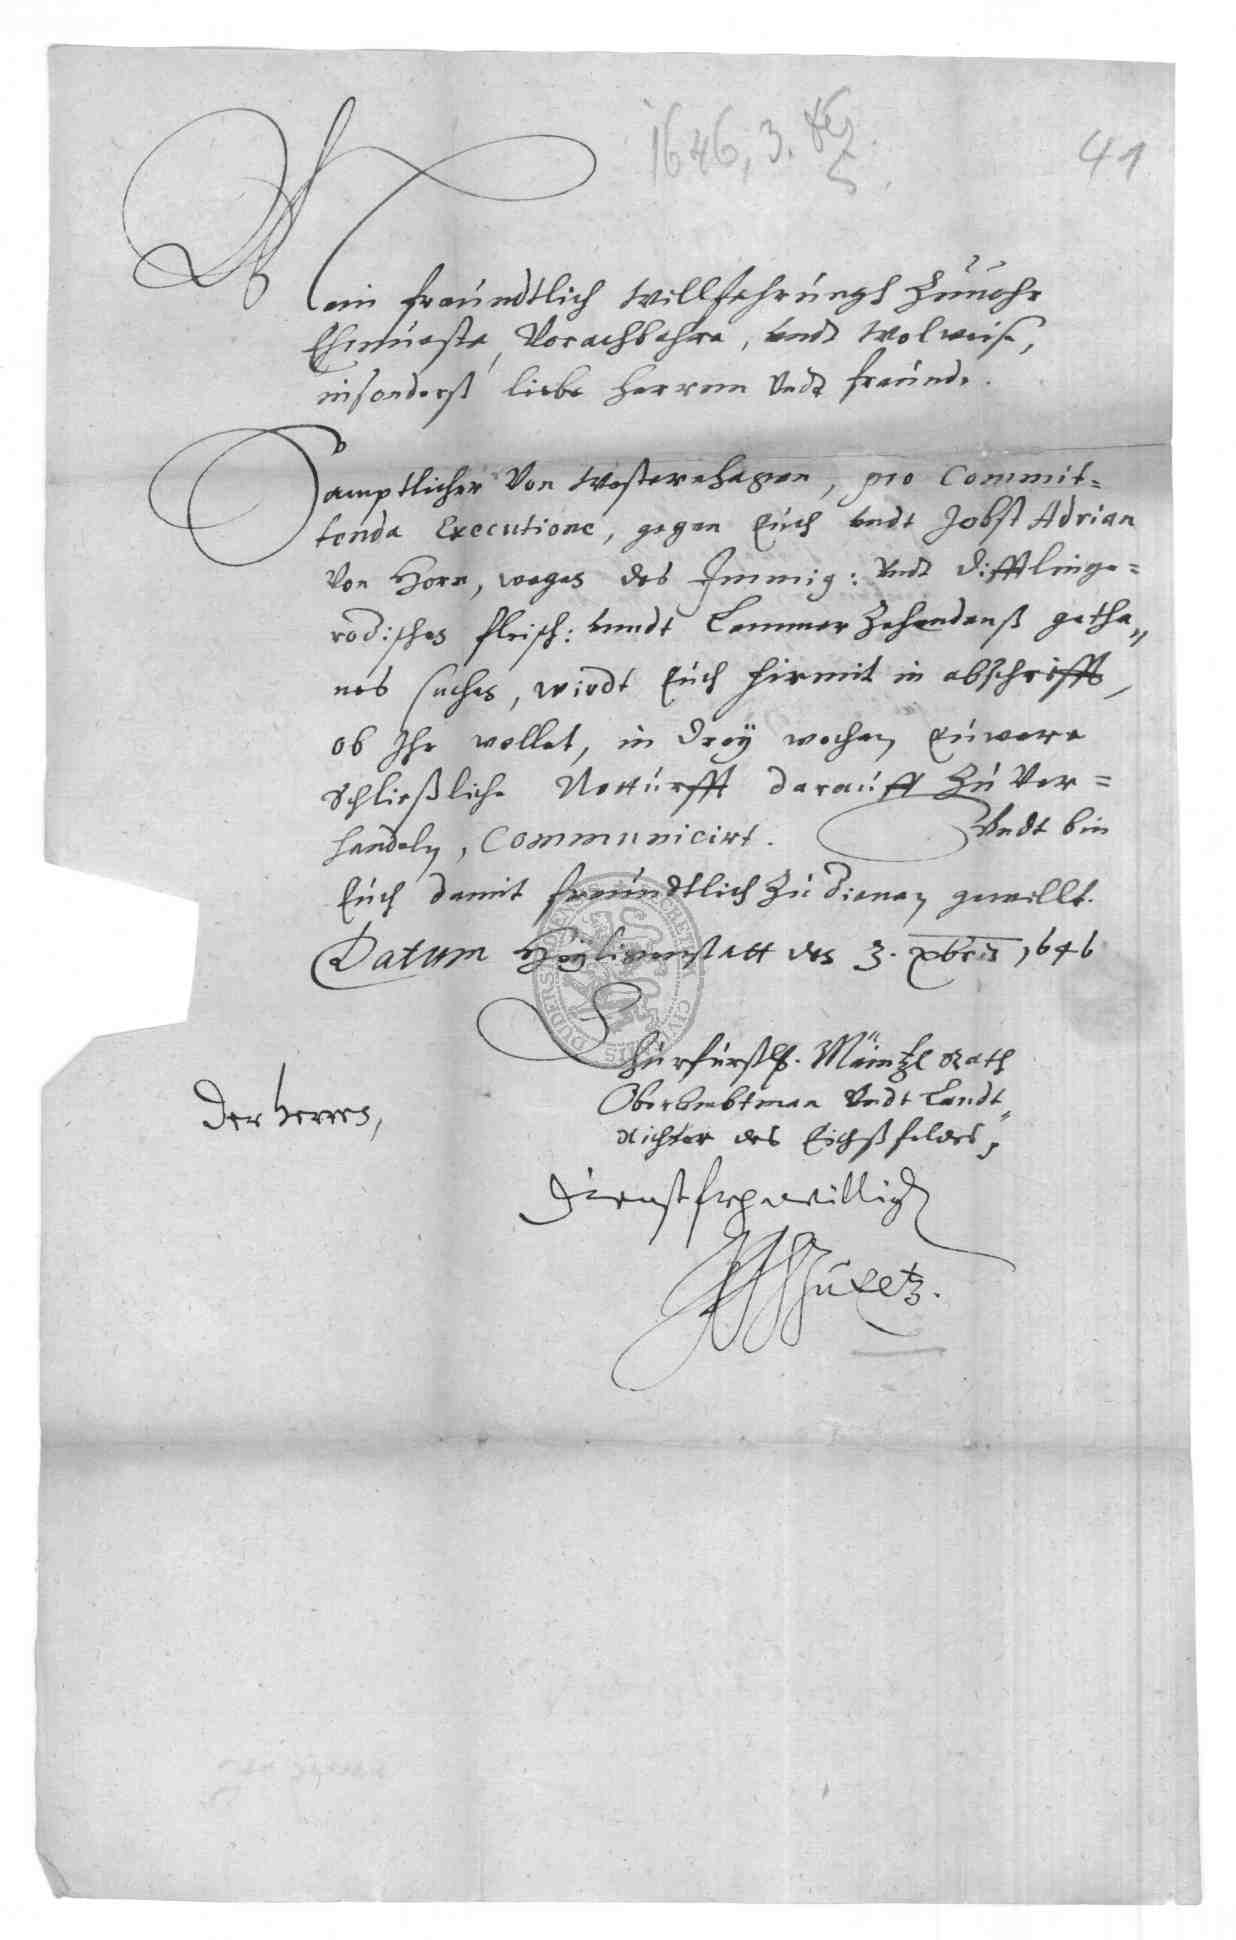 1646, 3.
41
Mein freundtlich Willfahrungh Zuuohr
Ehrnueste, Vorachbahre, undt Wolweise,
insonderß liebe Herren Undt freunde.
Samptlicher Von Westernhagen, pro Commit=
tenda Executione, gegen Euch undt Jobst Adrian
Von Horn, wegen des Immig: Undt Difftlinge=
rodischen fleisch: unndt Lemmer Zehendenß getha„
nes suchen, wirdt Euch hirmit in abschrifft,
ob Ihr wollet, in drey wochen Euwere
Schließliche Notturfft darauff Zu Ver=
handeln, Communicirt. Undt bin
Euch damit freundtlich Zu dienen gewillt.
Datum Heyligenstatt den 3. xbris 1646
Churfürstl. Mäintzl Rath
Oberambtman Undt Landt„
Richter des Eichßfeldes,
Der Herren,
Dienstfreywillig
DUDERSTADENSIS SECRETUM CIVITATIS